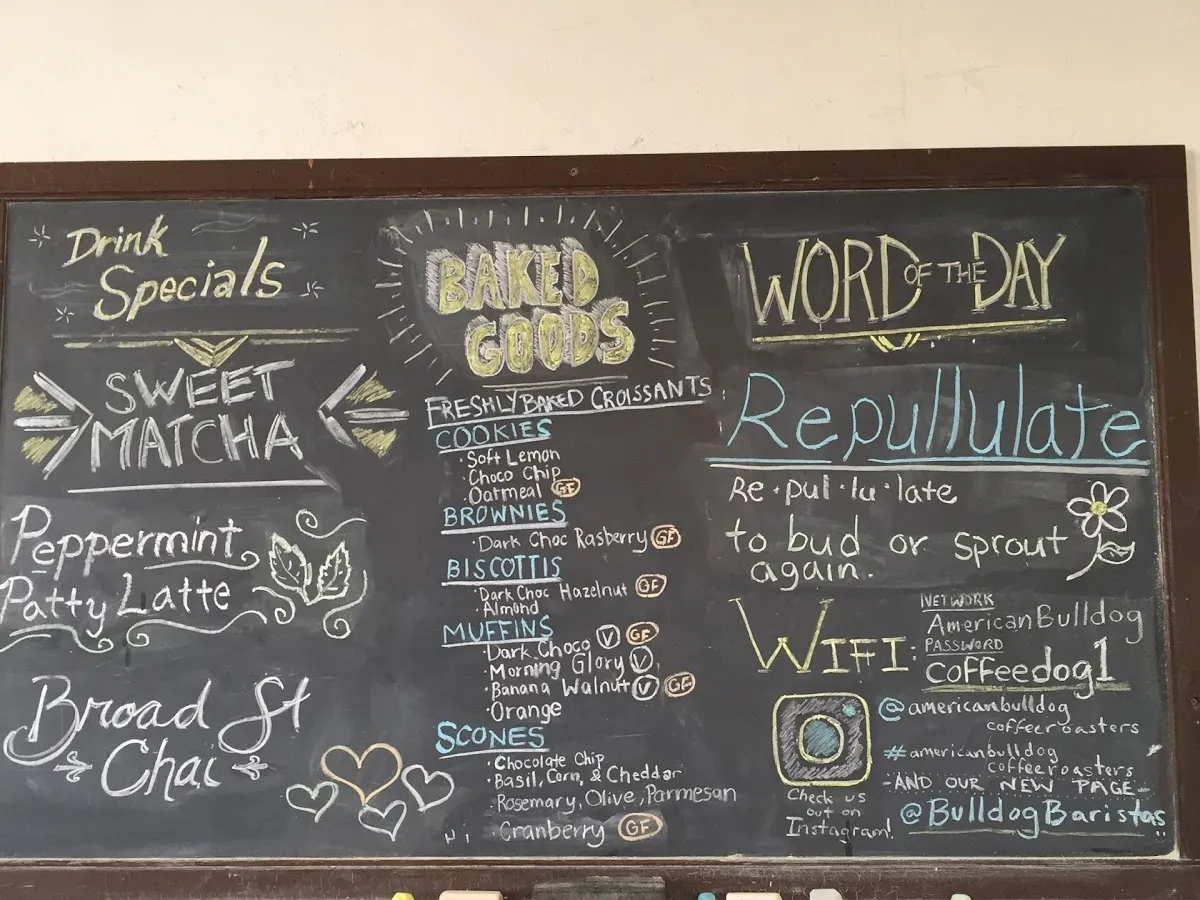 Drink
Specials
SWEET
MATCHA
Peppermint
Patty Latte
Broad St
Chai
BAKED
GOODS
FRESHLY BAKED CROISSANTS
COOKIES
· Soft Lemon
· Choco Chip
· Oatmeal GF
BROWNIES
· Dark Choc Rasberry GF
BISCOTTIS
· Dark Choc Hazelnut GF
· Almond
MUFFINS
· Dark Choco V GF
· Morning Glory V
· Banana Walnut V GF
· Orange
SCONES
· Chocolate Chip
· Basil, Corn, & Cheddar
· Rosemary, Olive, Parmesan
· Cranberry GF
WORD OF THE DAY
Repullulate
Re·pul·lu·late
to bud or sprout
again.
WIFI:
NETWORK
AmericanBulldog
PASSWORD
coffeedog1
@americanbulldog
coffeeroasters
#americanbulldog
coffeeroasters
-AND OUR NEW PAGE-
@BulldogBaristas
Check us
out on
Instagram!